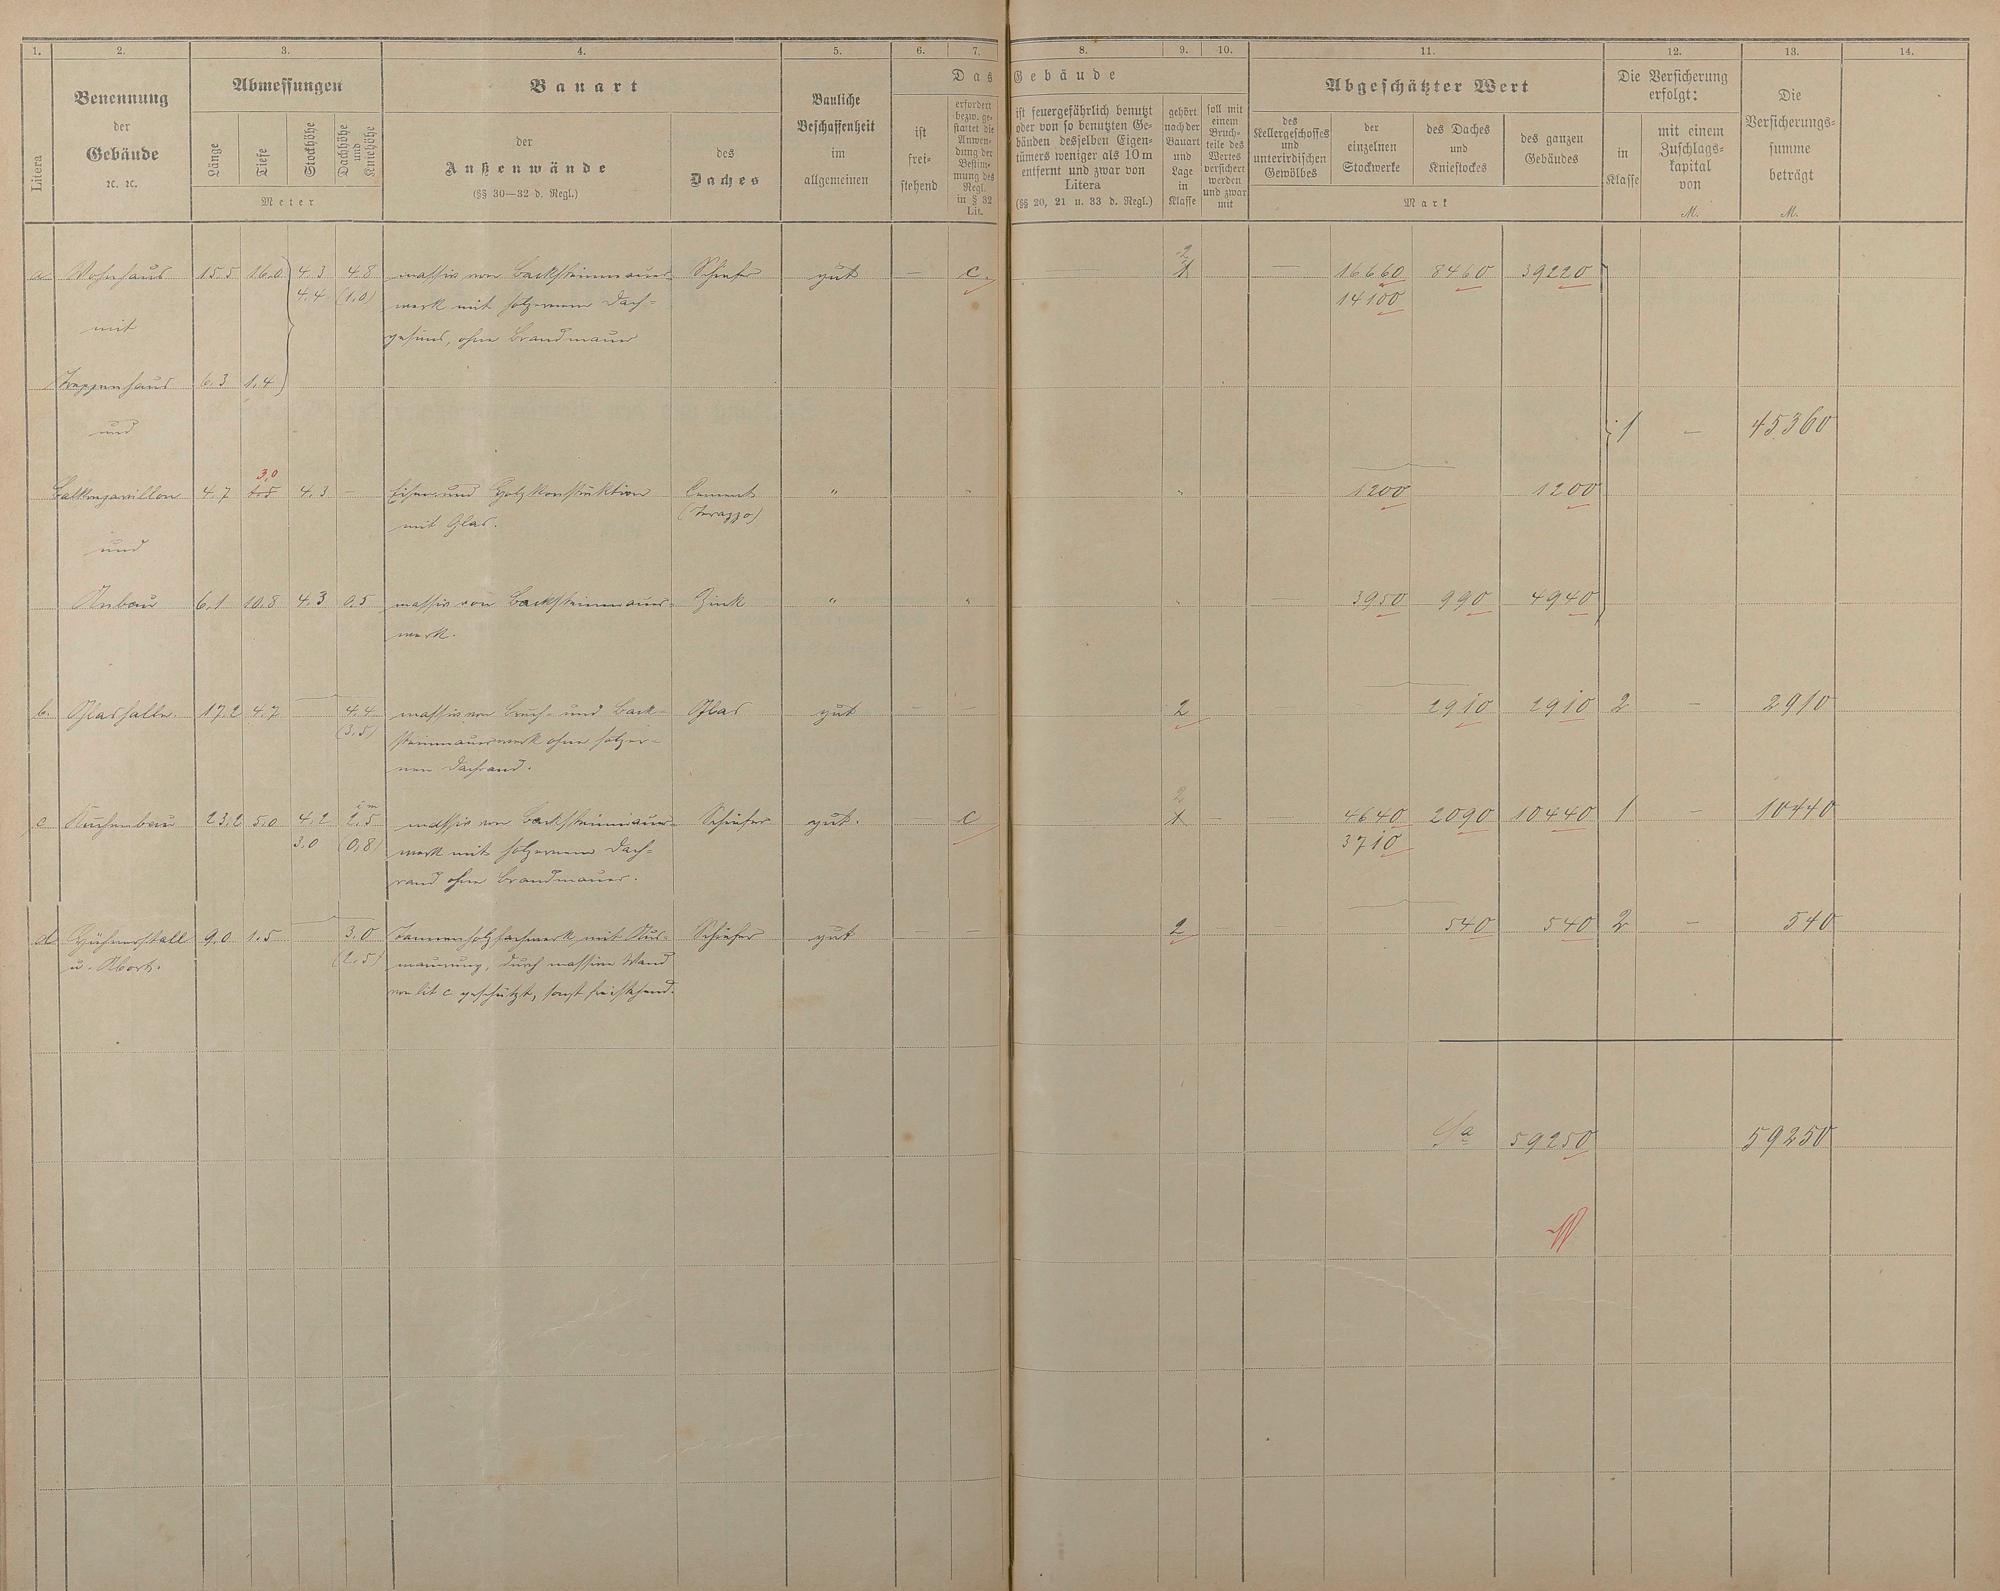 1. 2. 3. 4. 5. 6. 7. 8. 9. 10. 11. 12. 13. 14.
Litera
Benennung
der
Gebäude
ꝛc. ꝛc.
Abmessungen
Länge Tiefe Stockhöhe Dachhöhe und Kniehöhe
Meter
Bauart
der
Außenwände
(§§ 30—32 d. Regl.)
des
Daches
Bauliche
Beschaffenheit
im
allgemeinen
Das Gebäude
ist
frei-
stehend
erfordert
bezw. ge-
stattet die
Anwen-
dung der
Bestim-
mung des
Regl.
in § 32
Lit.
ist feuergefährlich benutzt
oder von so benutzten Ge-
bäuden desselben Eigen-
tümers weniger als 10 m
entfernt und zwar von
Litera
(§§ 20, 21 u. 33 d. Regl.)
gehört
nach der
Bauart
und
Lage
in
Klasse
soll mit
einem
Bruch-
teile des
Wertes
versichert
werden
und zwar
mit
Abgeschätzter Wert
des
Kellergeschosses
und
unterirdischen
Gewölbes
der
einzelnen
Stockwerke
des Daches
und
Kniestockes
des ganzen
Gebäudes
Mark
Die Versicherung
erfolgt:
in
Klasse
mit einem
Zuschlags-
kapital
von
M.
Die
Versicherungs-
summe
beträgt
M.
2
a Wohnhaus 15.5 16.0 4.3 4.8 massiv von Backsteinmauer- Schiefer gut — c. 1 — 16660 8460 39220
4.4 (1.0) werk mit hölzernem Dach- 14100
mit gesims, ohne Brandmauer
Treppenhaus 6.3 1.4
und 1 — 45360
3,0
Balkonpavillon 4.7 1.5 4.3 — Eisen und Holzkonstruktion Cement " " " 1200 1200
mit Glas. (Terazzo)
und
Anbau 6.1 10.8 4.3 0.5 massiv von Backsteinmauer- Zink " " " — 3950 990 4940
werk.
b. Glashalle. 17.2 4.7 4.4 massiv von Bruch- und Back- Glas gut — — 2 2910 2910 2 — 2910
(3.5) steinmauerwerk ohne hölzer-
nen Dachrand.
im 2
c Küchenbau 23.2 5.0 4.2 2.5 massiv von Backsteinmauer- Schiefer gut. c 1 — — 4640 2090 10440 1 — 10440
3.0 (0,8) werk mit hölzernem Dach- 3710
rand ohne Brandmauer.
d Hühnerstall 9.0 1.5 3.0 Tannenholzfachwerk, mit Aus- Schiefer gut — 2 — 540 540 2 — 540
u. Abort. (2.5) mauerung, durch massive Wand
von lit c geschützt, sonst freistehend.
Sa 59250 59250